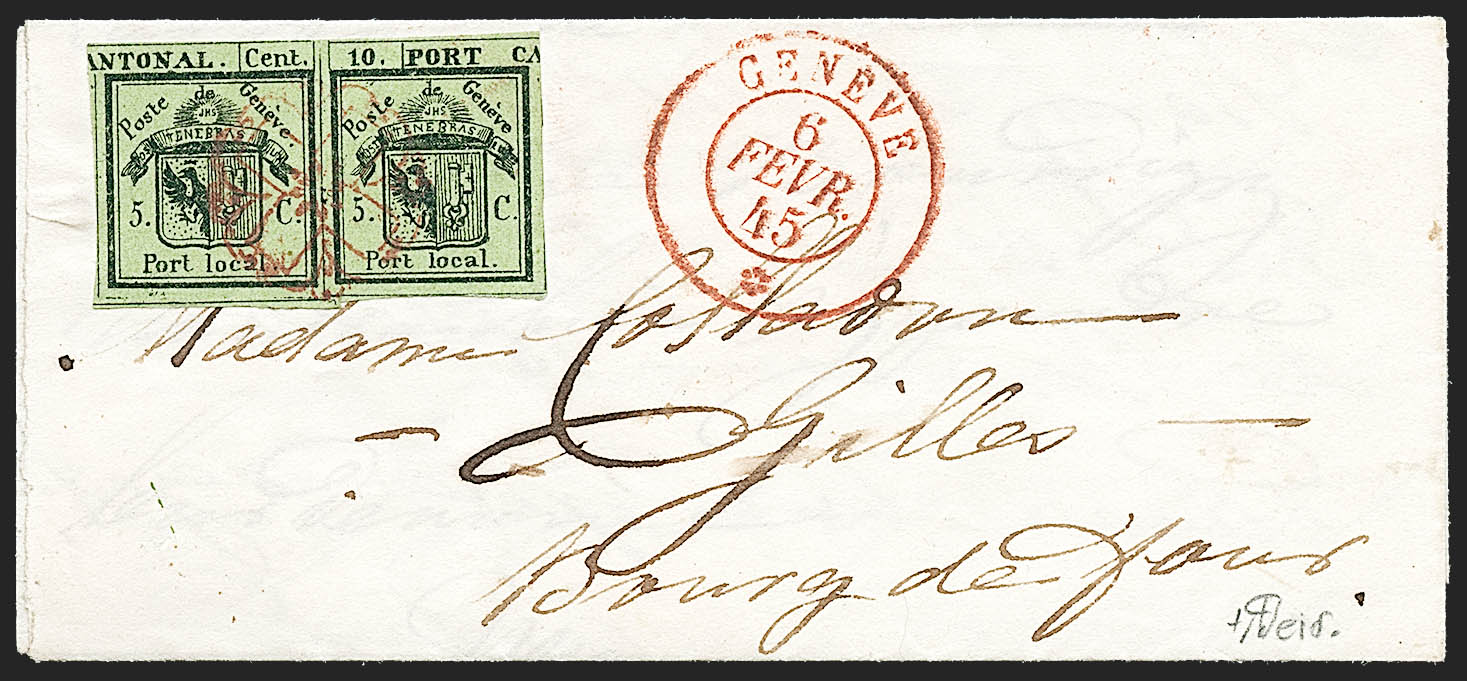 ANTONAL. Cent.
Poste de Genève.
JHS
TENEBRAS
5. C.
Port local.
10. PORT CA
Poste de Genève
JHS
TENEBRAS
5. C.
Port local.
GENEVE
6
FEVR.
45
Madame Colladon
Gilles
Bourg de four